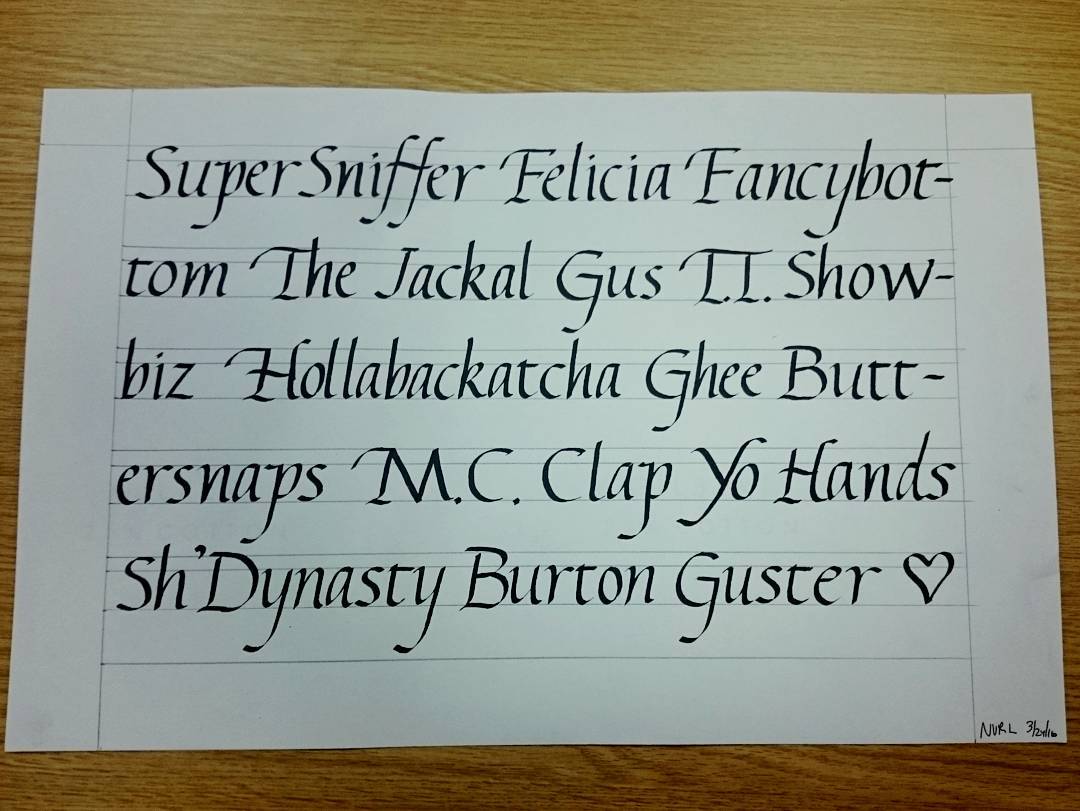 SuperSniffer Felicia Fancybot-
tom The Jackal Gus T.T. Show-
biz Hollabackatcha Ghee Butt-
ersnaps M.C. Clap Yo Hands
Sh'Dynasty Burton Guster ♡
NURL 3/24/16